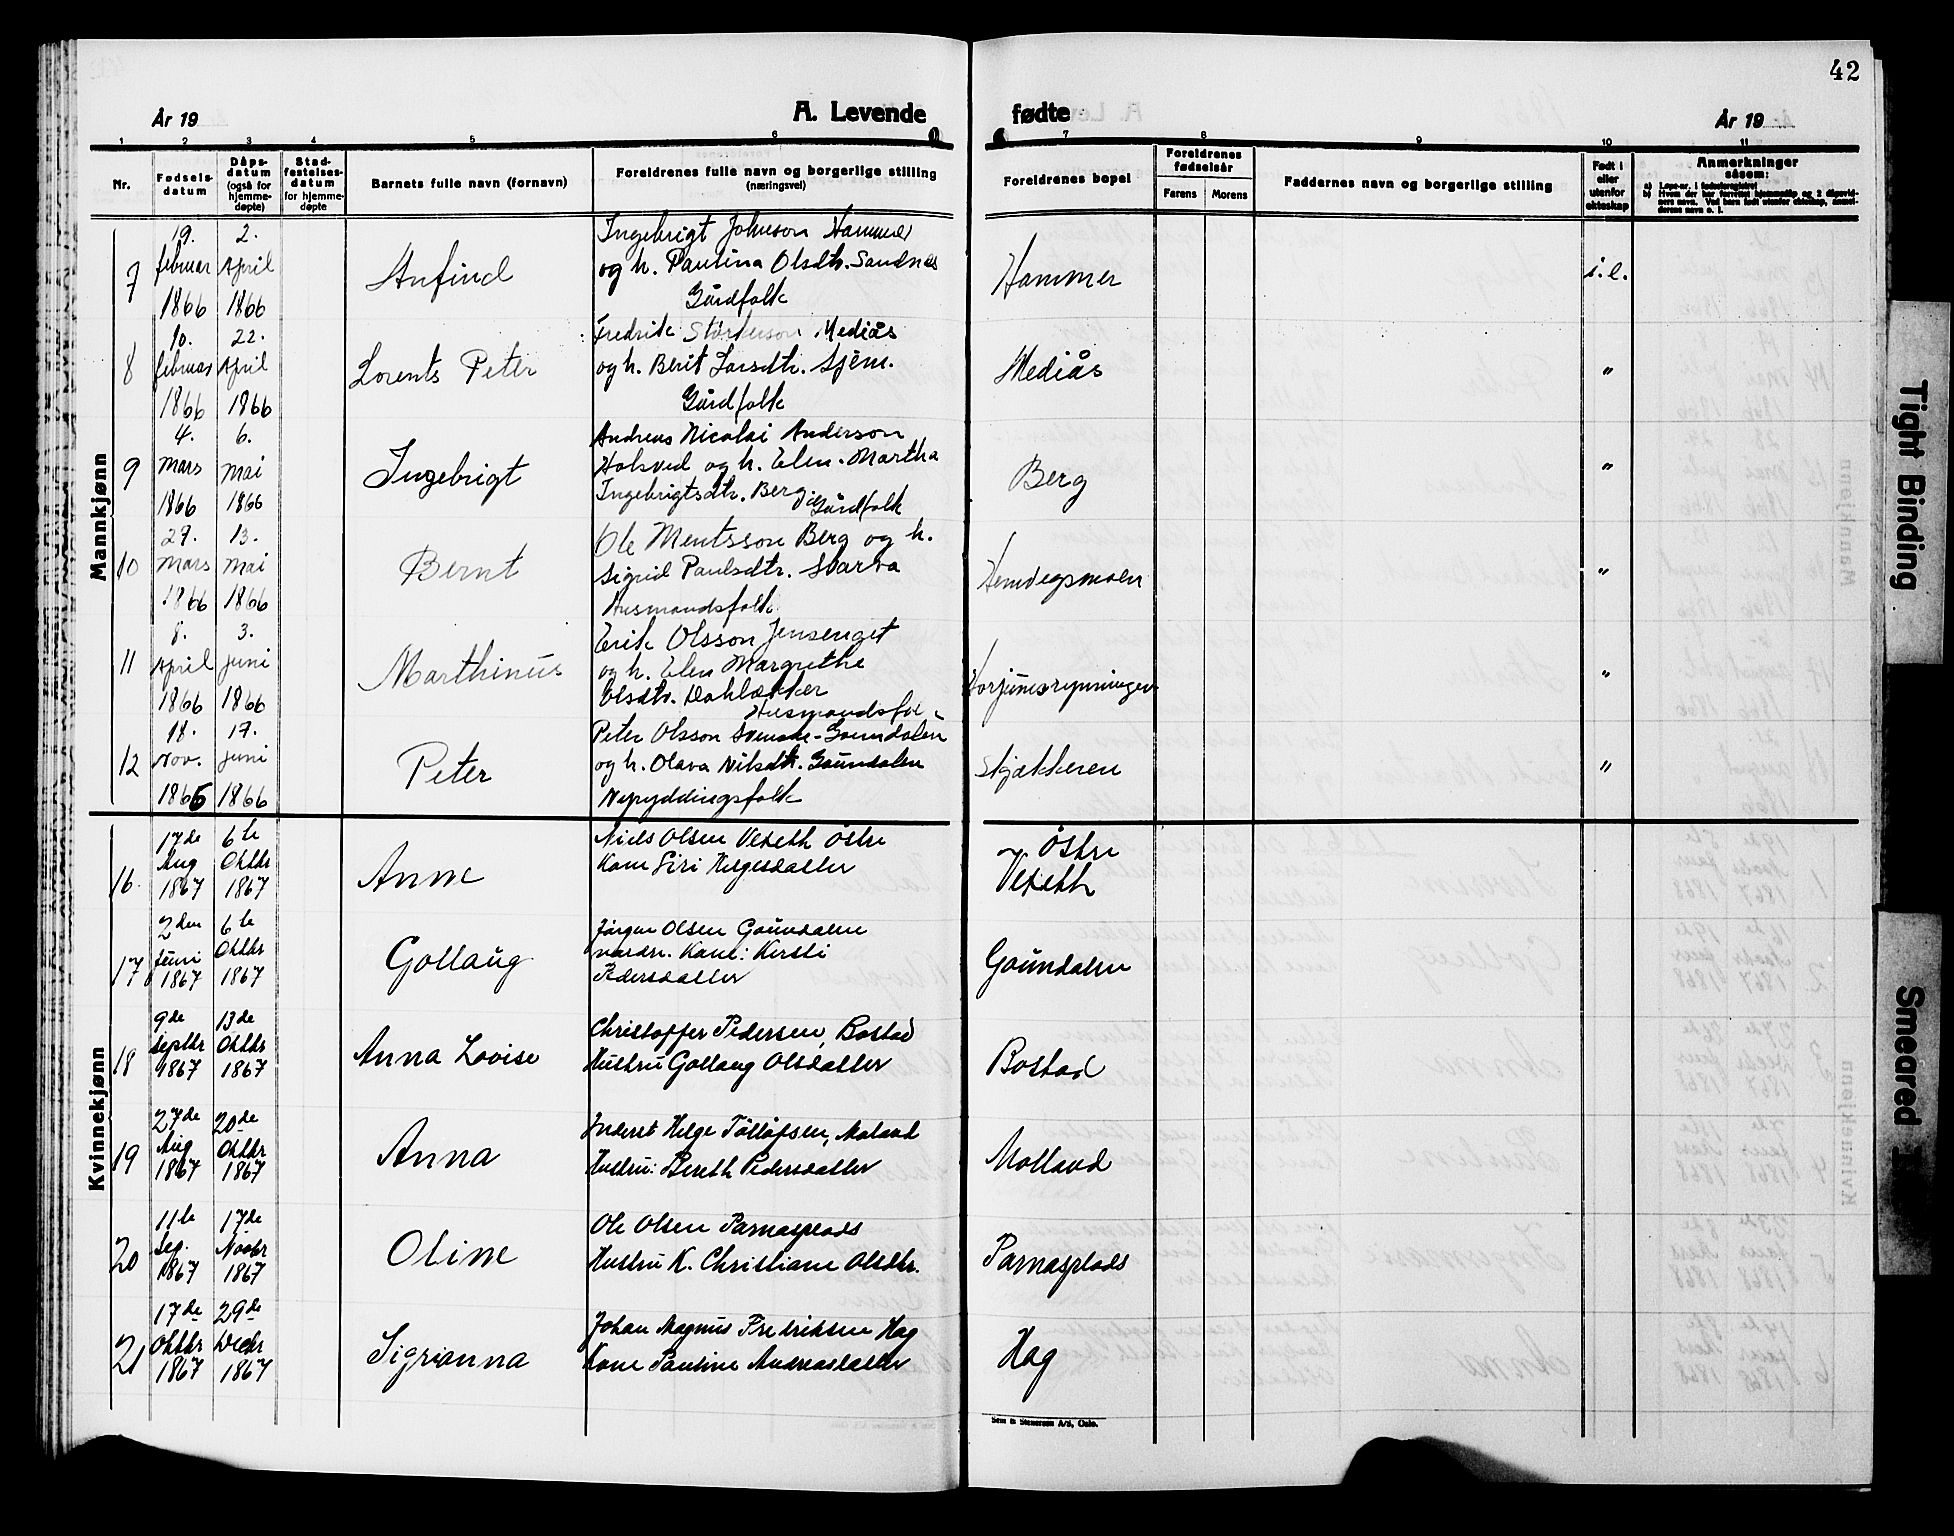 42
År 19
A. Levende fødte
År 19
1 2 3 4 5 6 7 8 9 10 11
Nr.
Fødsels-
datum
Dåps-
datum
(også for
hjemme-
døpte)
Stad-
festelses-
datum
for hjemme-
døpte
Barnets fulle navn (fornavn)
Foreldrenes fulle navn og borgerlige stilling
(næringsvei)
Foreldrenes bopel
Foreldrenes
fødselsår
Farens Morens
Faddernes navn og borgerlige stilling
Født i
eller
utenfor
ekteskap
Anmerkninger
såsom:
Mannkjønn
7
19.
februar
1866
2.
April
1866
Anfind
Ingebrigt Johnson Hammer
og h. Paulina Olsdtr. Sandnes
Gårdfolk
Hammer
i.e.
8
10.
februar
1866
22.
April
1866
Lorents Peter
Fredrik Mediås
og h. Berit Larsdtr. Sjem.
Gårdfolk
Mediås
"
9
4.
Mars
1866
6.
Mai
1866
Ingebrigt
Andreas Nicolai Anderson
Holsved og h. Elen Martha
Ingebrigtsdtr. Berg
Gårdfolk
Berg
"
10
27.
Mars
1866
13.
Mai
1866
Bernt
Ole Mentsson Berg og h.
Sigrid Paulsdtr. Starva
Husmandsfolk
Hemdegsmoen
"
11
8.
April
1866
3.
Juni
1866
Marthinus
Erik Olsson Jensenget
og h. Elen Margrethe
Olsdtr. Kohlækker
Husmandsfol
"
12
18.
Nov.
1865
17.
Juni
1866
Peter
Peter Olsson Svenske-Gaundalen
og h. Olava Nilsdtr. Gaundalen
Nyryddingsfolk
Skjækkeren
"
Kvinnekjønn
16.
17de
Aug
1867
6te
Oktbr
1867
Anne
Niels Olsen Veseth Østre
Kone Siri Helgesdatter
Østre
Veseth
17
2den
Juni
1867
6te
Oktbr
1867
Gollaug
Jørgen Olsen Gaundalen
nordre. Kone: Kersti
Pedersdatter
Gaundalen
18
9de
Septbr
1867
13de
Oktbr
1867
Anna Lovise
Christoffer Pedersen, Bostad
Hustru Gollaug Olsdatter
Bostad
19
27de
Aug
1867
20de
Oktbr
1867
Anna
Inderst Helge Tollofsen, Moland
Hustru: Bereth Pedersdatter
Molland
20
11te
Sep.
1867
17de
Novbr
1867
Oline
Ole Olsen Parnasplads
Hustru K. Christiane Olsdtr.
Parnasplads
21
17de
Oktbr
1867
29de
Decbr
1867
Sigrianna
Johan Magnus Fredriksen Hag
Kone Pauline Andreasdatter
Hag
Sem & Stenersen A/S, Oslo.
Tight Binding
Smeared